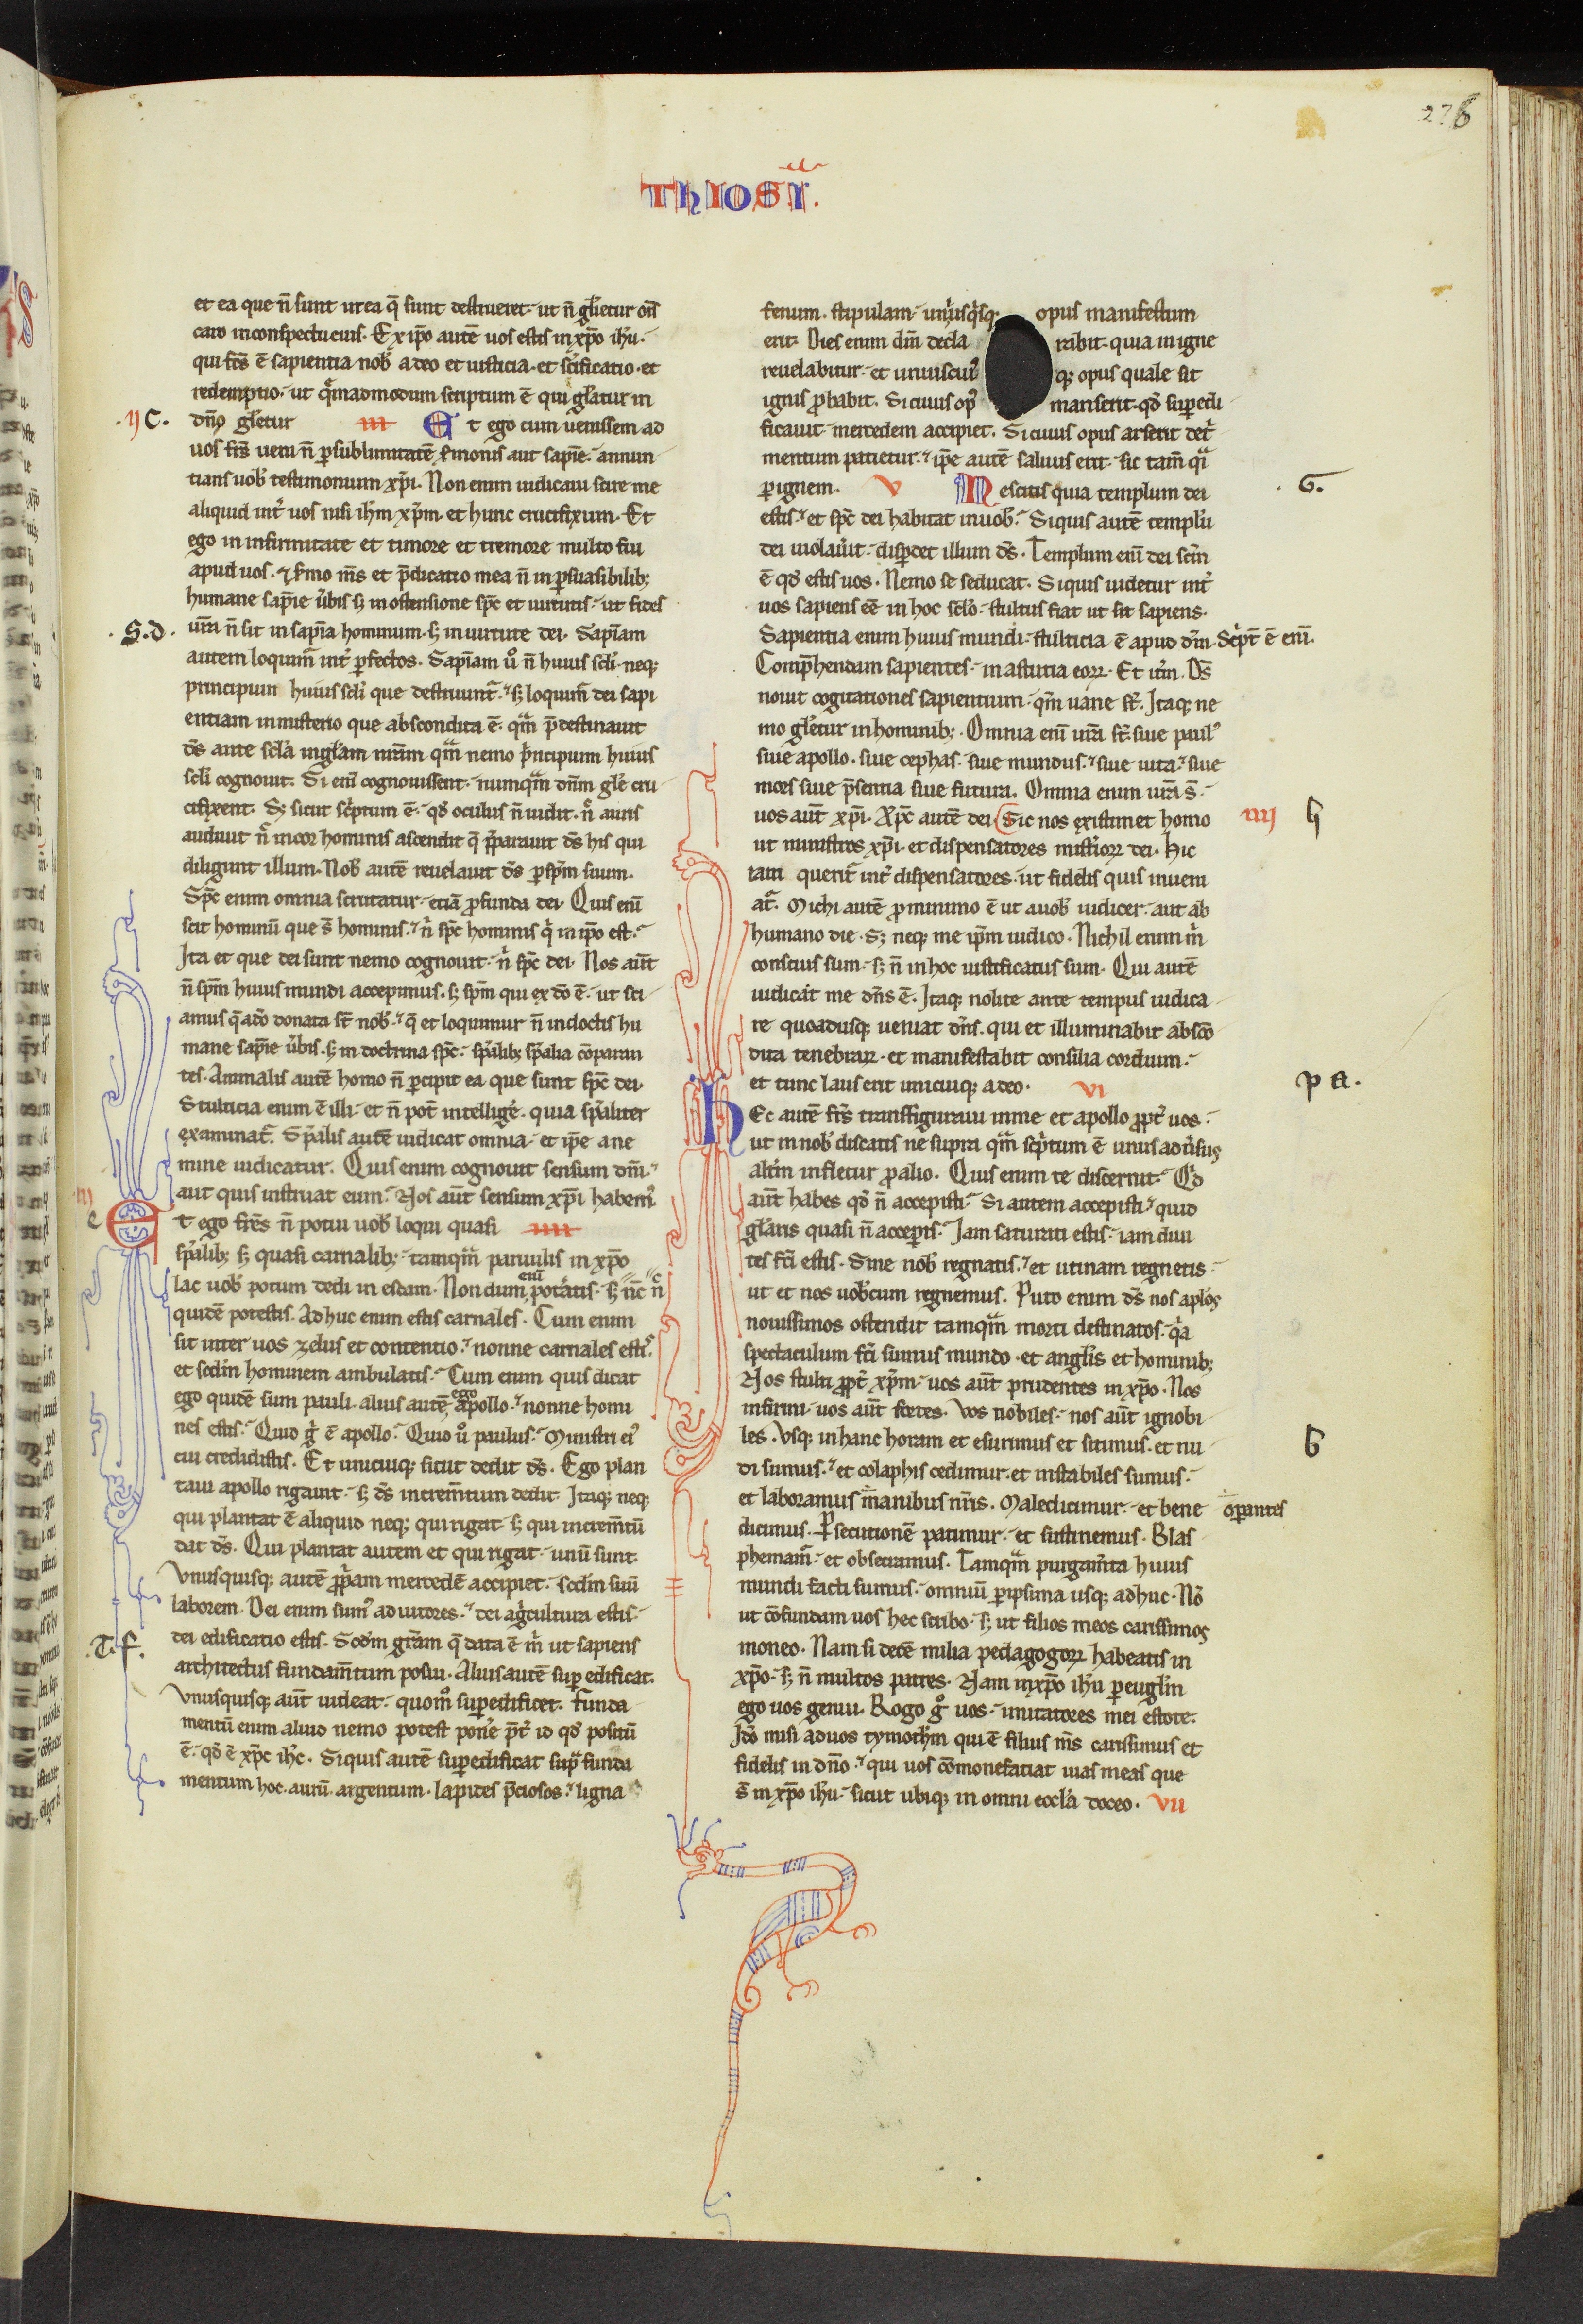 276
THIOSI.
et ea que n̄ sunt ut ea q̄ sunt destrueret. ut n̄ gl̄ietur om̄s
caro in conspectu eius. Ex ip̄o autē uos estis in xp̄o ih̄u.
qui fc̄s ē sapientia nob̄ a deo et iusticia. et sc̄ificatio. et
redemptio. ut qͤmadmodum scriptum ē qui gl̄atur in
.ij C. dn̄o gl̄etur iii Et ego cum uenissem ad
uos fr̄s ueni n̄ p̄ sublimitatē s̄monis aut sapīe. annun
tians uob̄ testimonium xp̄i. Non enim iudicaui scire me
aliquid int̄ uos nisi ih̄m xp̄m. et hunc crucifixum. Et
ego in infirmitate et timore et tremore multo fui
apud uos. ⁊ s̄mo m̄s et p̄dicatio mea n̄ in p̄suasibilib;
humane sapīe ūbis s; in ostensione sp̄c et uirtutis. ut fides
.S.d. ur̄a n̄ sit in sapīa hominum. s; in uirtute dei. Sapīam
autem loquim̄ int̄ p̄fectos. Sapīam u͛o n̄ huius sc̄li. neq;
principum huius sc̄li que destruunt̄. s; loquim̄ dei sapi
entiam in misterio que abscondita ē. qͣm p̄destinauit
ds̄ ante sc̄la in gl̄am nr̄am qͣm nemo pⁱncipum huius
sc̄li cognouit. Si enī cognouissent. numqͣm dn̄m gl̄e cru
cifixent. S; sicut scⁱptum ē. qd̄ oculus n̄ uidit. n̄ auris
audiuit n̄ in cor hominis ascendit q̄ p̄parauit ds̄ his qui
diligunt illum. Nob̄ autē reuelauit ds̄ p̄ sp̄m suum.
Sp̄c enim omnia scrutatur. etiā p̄funda dei. Quis enī
scit hominū que s̄ hominis. n̄ sp̄c hominis qⁱ in ip̄o est.
Ita et que dei sunt nemo cognouit. n̄ sp̄c dei. Nos aūt
n̄ sp̄m huius mundi accepimus. s; sp̄m qui ex dō ē. ut sci
amus q̄ a dō donata st̄ nob̄. q̄ et loquimur n̄ in doctis hu
mane sapīe ūbis. s; in doctrina sp̄c. sp̄alib; sp̄alia cōparan
tes. Animalis autē homo n̄ p̄cipit ea que sunt sp̄c dei.
Stulticia enim ē illi. et n̄ pot̄ intellige̛. quia sp̄aliter
examinat̄. Sp̄alis autē iudicat omnia. et ip̄e a ne
mine iudicatur. Quis enim cognouit sensum dn̄i.
aut quis instruat eum. Nos aūt sensum xp̄i habem̛.
iij e Et ego fr̄es n̄ potui uob̄ loqui quasi iiii
sp̄alib; s; quasi carnalib;. tamqͣm paruulis in xp̄o
lac uob̄ potum dedi n̄ escam. Nondum enī poteratis. s; nc̄ n̄
quidē potestis. Adhuc enim estis carnales. Cum enim
sit inter uos zelus et contentio. nonne carnales estis
et sc̄dm hominem ambulatis. Cum enim quis dicat
ego quidē sum pauli. alius autē ego apollo. nonne homi
nes estis. Quid gⁱ ē apollo. Quid u͛o paulus. Ministri ei̛
cui credidistis. Et unicuiq; sicut dedit ds̄. Ego plan
taui apollo rigauit. s; ds̄ increm̄tum dedit. Itaq; neq;
qui plantat ē aliquid neq; qui rigat. s; qui increm̄tū
dat ds̄. Qui plantat autem et qui rigat. unū sunt.
Vnusquisq; autē p̄pⁱam mercedē accipiet. sc̄dm suū
laborem. Dei enim sum̛ adiutores. dei agⁱcultura estis.
.T.f. dei edificatio estis. Sc̄dm grām q̄ data ē m̄ ut sapiens
architectus fundam̄tum posui. Alius autē sup̄edificat.
Vnusquisq; aūt uideat. quomͦ sup̄edificet. Funda
mentū enim aliud nemo potest pone̛ p̄t̄ id qd̄ positū
ē. qd̄ ē xp̄c ih̄c. Siquis autē sup̄edificat supͣ funda
mentum hoc. aurū. argentum. lapides p̄ciosos. ligna
fenum. stipulam. unⁱusqⁱsq; opus manifestum
erit. Dies enim dn̄i decla rabit. quia in igne
reuelabitur. et uniuscui̛ q; opus quale sit
ignis p̄babit. Si cuius op̛ manserit. qd̄ sup̄edi
ficauit. mercedem accipiet. Si cuius opus arserit det̄
mentum patietur. ip̄e autē saluus erit. sic tam̄ qͣi
p̄ ignem. V Nescitis quia templum dei .G.
estis. et sp̄c dei habitat in uob̄. Siquis autē templū
dei uiolaưit. disp̄det illum ds̄. Templum enī dei sc̄m
ē qd̄ estis uos. Nemo se seducat. Siquis uidetur int̄
uos sapiens eē in hoc sc̄lo. stultus fiat ut sit sapiens.
Sapientia enim huius mundi. stulticia ē apud dm̄. Scⁱpt̄ ē enī.
Comp̄hendam sapientes. in astutia eoꝝ. Et itm̄. Ds̄
nouit cogitationes sapientium. qm̄ uane st̄. Itaq; ne
mo gl̄etur in hominib;. Omnia enī ur̄a st̄. siue paul̛
siue apollo. siue cephas. siue mundus. siue uita. siue
mors siue p̄sentia siue futura. Omnia enim ur̄a s̄.
uos aūt xp̄i. Xp̄c autē dei. Sic nos existimet homo iiij h
ut ministros xp̄i. et dispensatores mist̄ioꝝ dei. Hic
iam querit̄ int̄ dispensatores. ut fidelis quis inueni
at̄. Michi autē p̄ minimo ē ut a uob̄ iudicer. aut ab
humano die. S; neq; me ip̄m iudico. Nichil enim m̄
conscius sum. s; n̄ in hoc iustificatus sum. Qui autē
iudicat me dn̄s ē. Itaq; nolite ante tempus iudica
re quoadusq; ueniat dn̄s. qui et illuminabit abscō
dita tenebraꝝ. et manifestabit consilia cordium.
et tunc laus erit unicuiq; a deo. VI p a.
Hec autē fr̄s transfiguraui in me et apollo p̄pt̄ uos.
ut in nob̄ discatis ne supra qͣm scⁱptum ē unus adưsus
alt̄m infletur p̄ alio. Quis enim te discernit. Qd̄
aūt habes qd̄ n̄ accepisti. Si autem accepisti. quid
gl̄aris quasi n̄ accep̄is. Iam saturati estis. iam diui
tes fc̄i estis. Sine nob̄ regnatis. et utinam regnetis.
ut et nos uob̄cum regnemus. Puto enim ds̄ nos apl̄os
nouissimos ostendit tamqͣm morti destinatos. qͣa
spectaculum fc̄i sumus mundo. et angl̄is et hominib;
Nos stulti p̄pt̄ xp̄m. uos aūt prudentes in xp̄o. Nos
infirmi. uos aūt fortes. Vos nobiles. nos aūt ignobi
les. Vsq; in hanc horam et esurimus et sitimus. et nu b
di sumus. et colaphis cedimur. et instabiles sumus.
et laboramus manibus nr̄is. Maledicimur. et bene op̄antes
dicimus. P̄secutionē patimur. et sustinemus. Blas
phemam̄. et obsecramus. Tamqͣm purgam̄ta huius
mundi facti sumus. omniū p̄ipsima usq; adhuc. Nō
ut cōfundam uos hec scribo. s; ut filios meos carissimos
moneo. Nam si decē milia pedagogoꝝ habeatis in
xp̄o. s; n̄ multos patres. Nam in xp̄o ih̄u p̄ euḡlm
ego uos genui. Rogo gͦ uos. imitatores mei estote.
Id̄o misi ad uos tymothm̄ qui ē filius m̄s carissimus et
fidelis in dn̄o. qui uos cōmonefatiat uias meas que
s̄ in xp̄o ih̄u. sicut ubiq; in omni eccl̄a doceo. VII